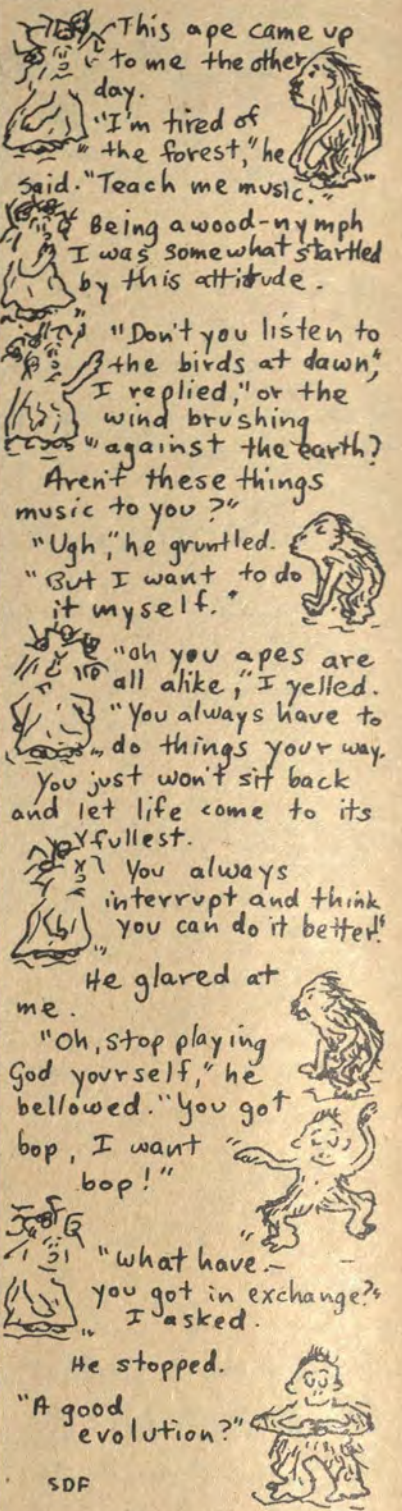 This ape came up
to me the other
day.
"I'm tired of
the forest," he
said. "Teach me music."
Being a wood-nymph
I was somewhat startled
by this attitude.
"Don't you listen to
the birds at dawn,"
I replied, "or the
wind brushing
against the earth?
Aren't these things
music to you?"
"Ugh," he gruntled.
"But I want to do
it myself."
"Oh you apes are
all alike," I yelled.
"You always have to
do things your way.
You just won't sit back
and let life come to its
fullest.
You always
interrupt and think
you can do it better!"
He glared at
me.
"Oh, stop playing
God yourself," he
bellowed. "You got
bop, I want
bop!"
"What have
you got in exchange?"
I asked.
He stopped.
"A good
evolution?"
SDF